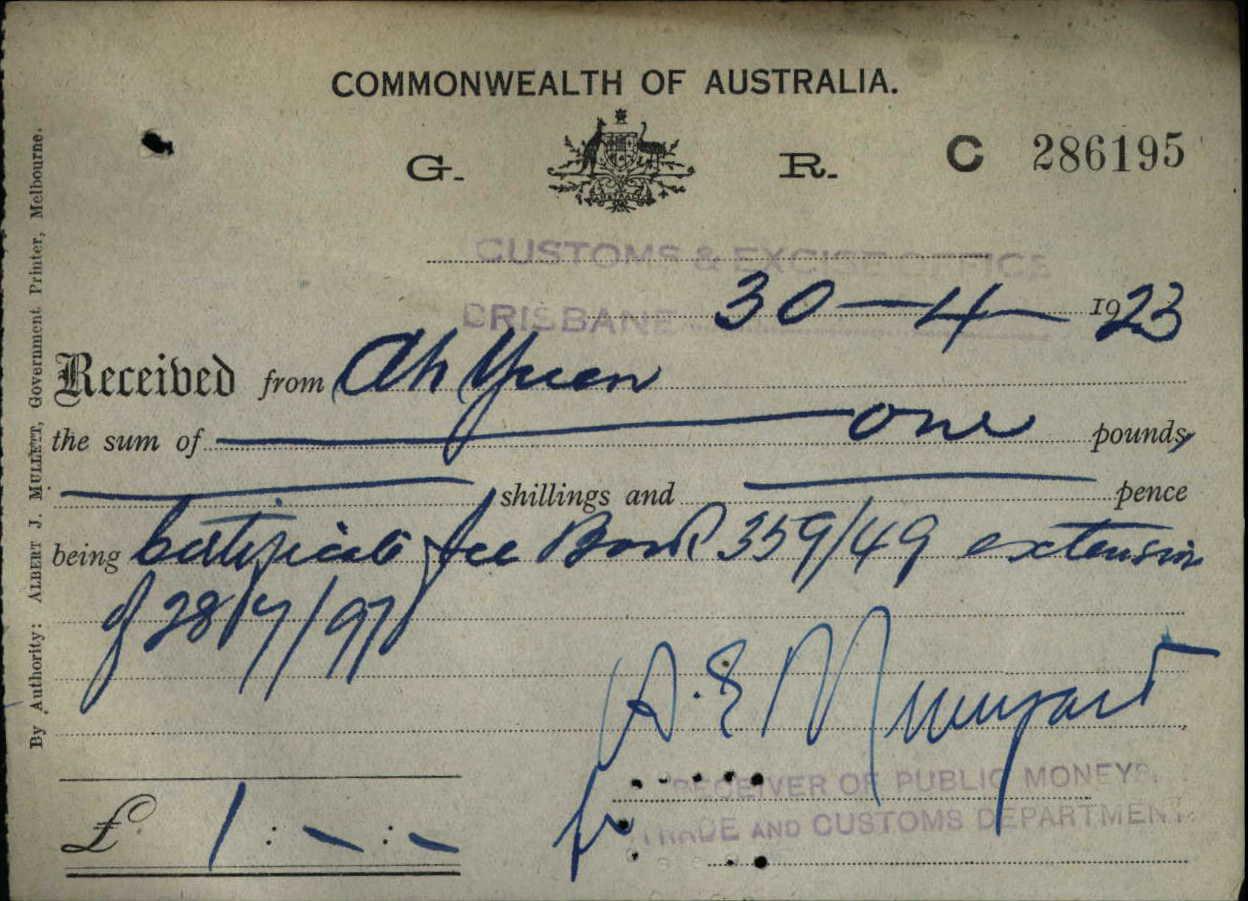 COMMONWEALTH OF AUSTRALIA.
G. R. C 286195
CUSTOMS & EXCISE OFFICE
BRISBANE 30-4-1923
Received from Ah Yuen
the sum of one pounds
shillings and pence
being Certificate fee Book 359/49 extension
of 28/7/97
A. E.
RECEIVER OF PUBLIC MONEYS,
for
TRADE AND CUSTOMS DEPARTMENT.
£ 1 : - : -
By Authority: ALBERT J. MULLETT, Government Printer, Melbourne.